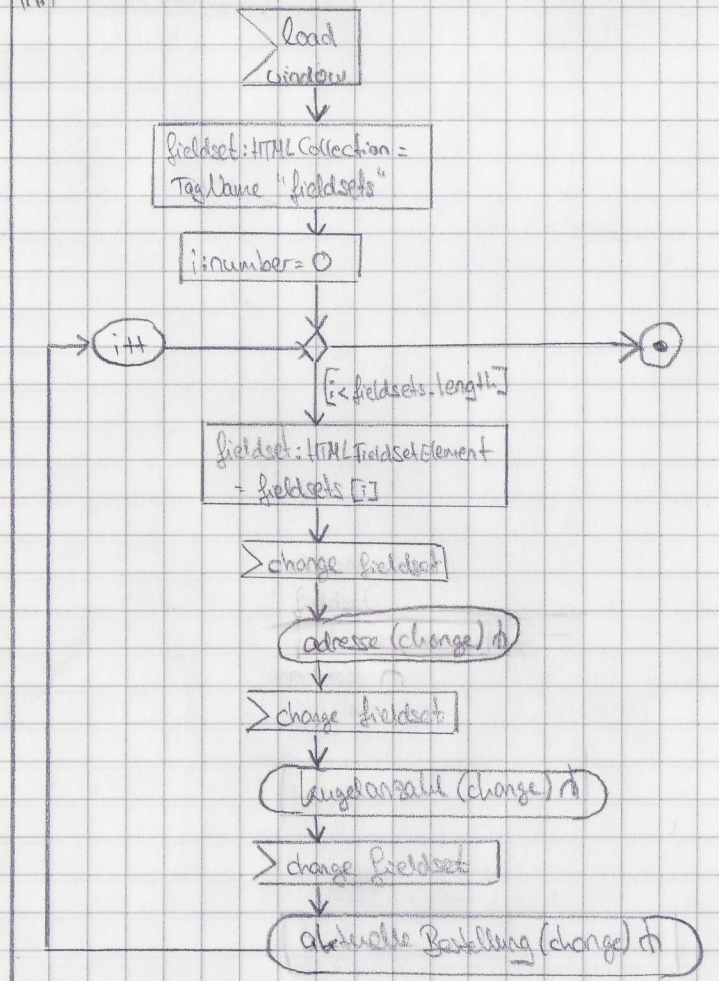 load
window
fieldset:HTMLCollection =
TagName "fieldsets"
i:number= 0
i++
[i< fieldsets.length]
fieldset:HTMLFieldSetElement
= fieldsets [i]
change fieldset
adresse (change)
change fieldset
kugelanzahl (change)
change fieldset
aktuelle Bestellung (change)